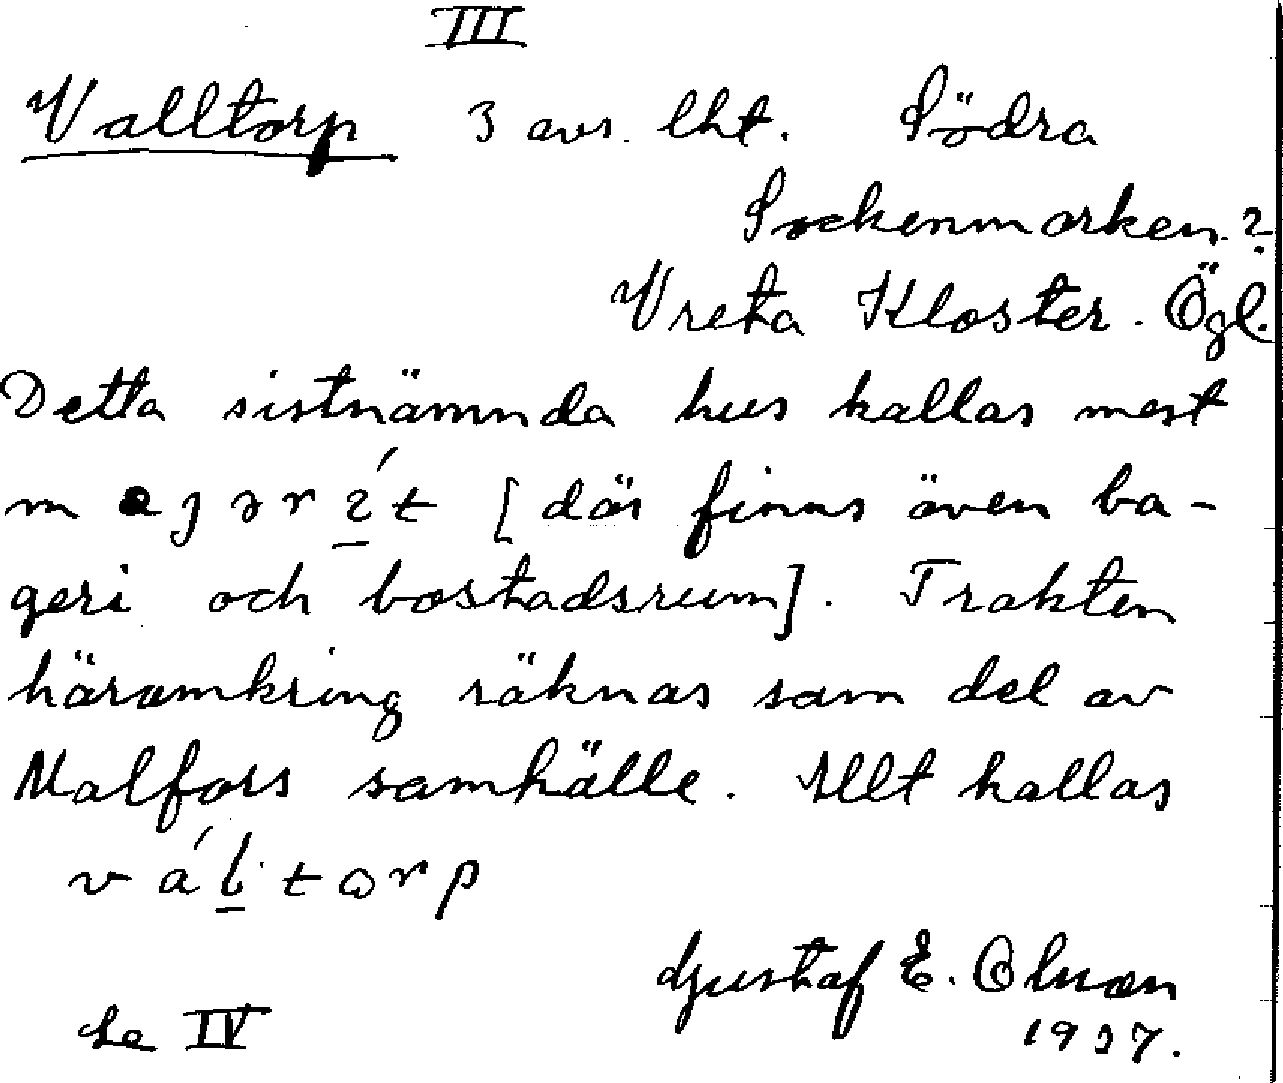 III
Valltorp 3 avs. lht. Södra
Sockenmarken?
Vreta Kloster. Ögl.
Detta sistnämnda hus kallas mest
[där finns även ba-
geri och bostadsrum]. Trakten
häromkring räknas som del av
Malfors samhälle. Allt kallas
Gustaf E. Olsson
1937.
Se IV